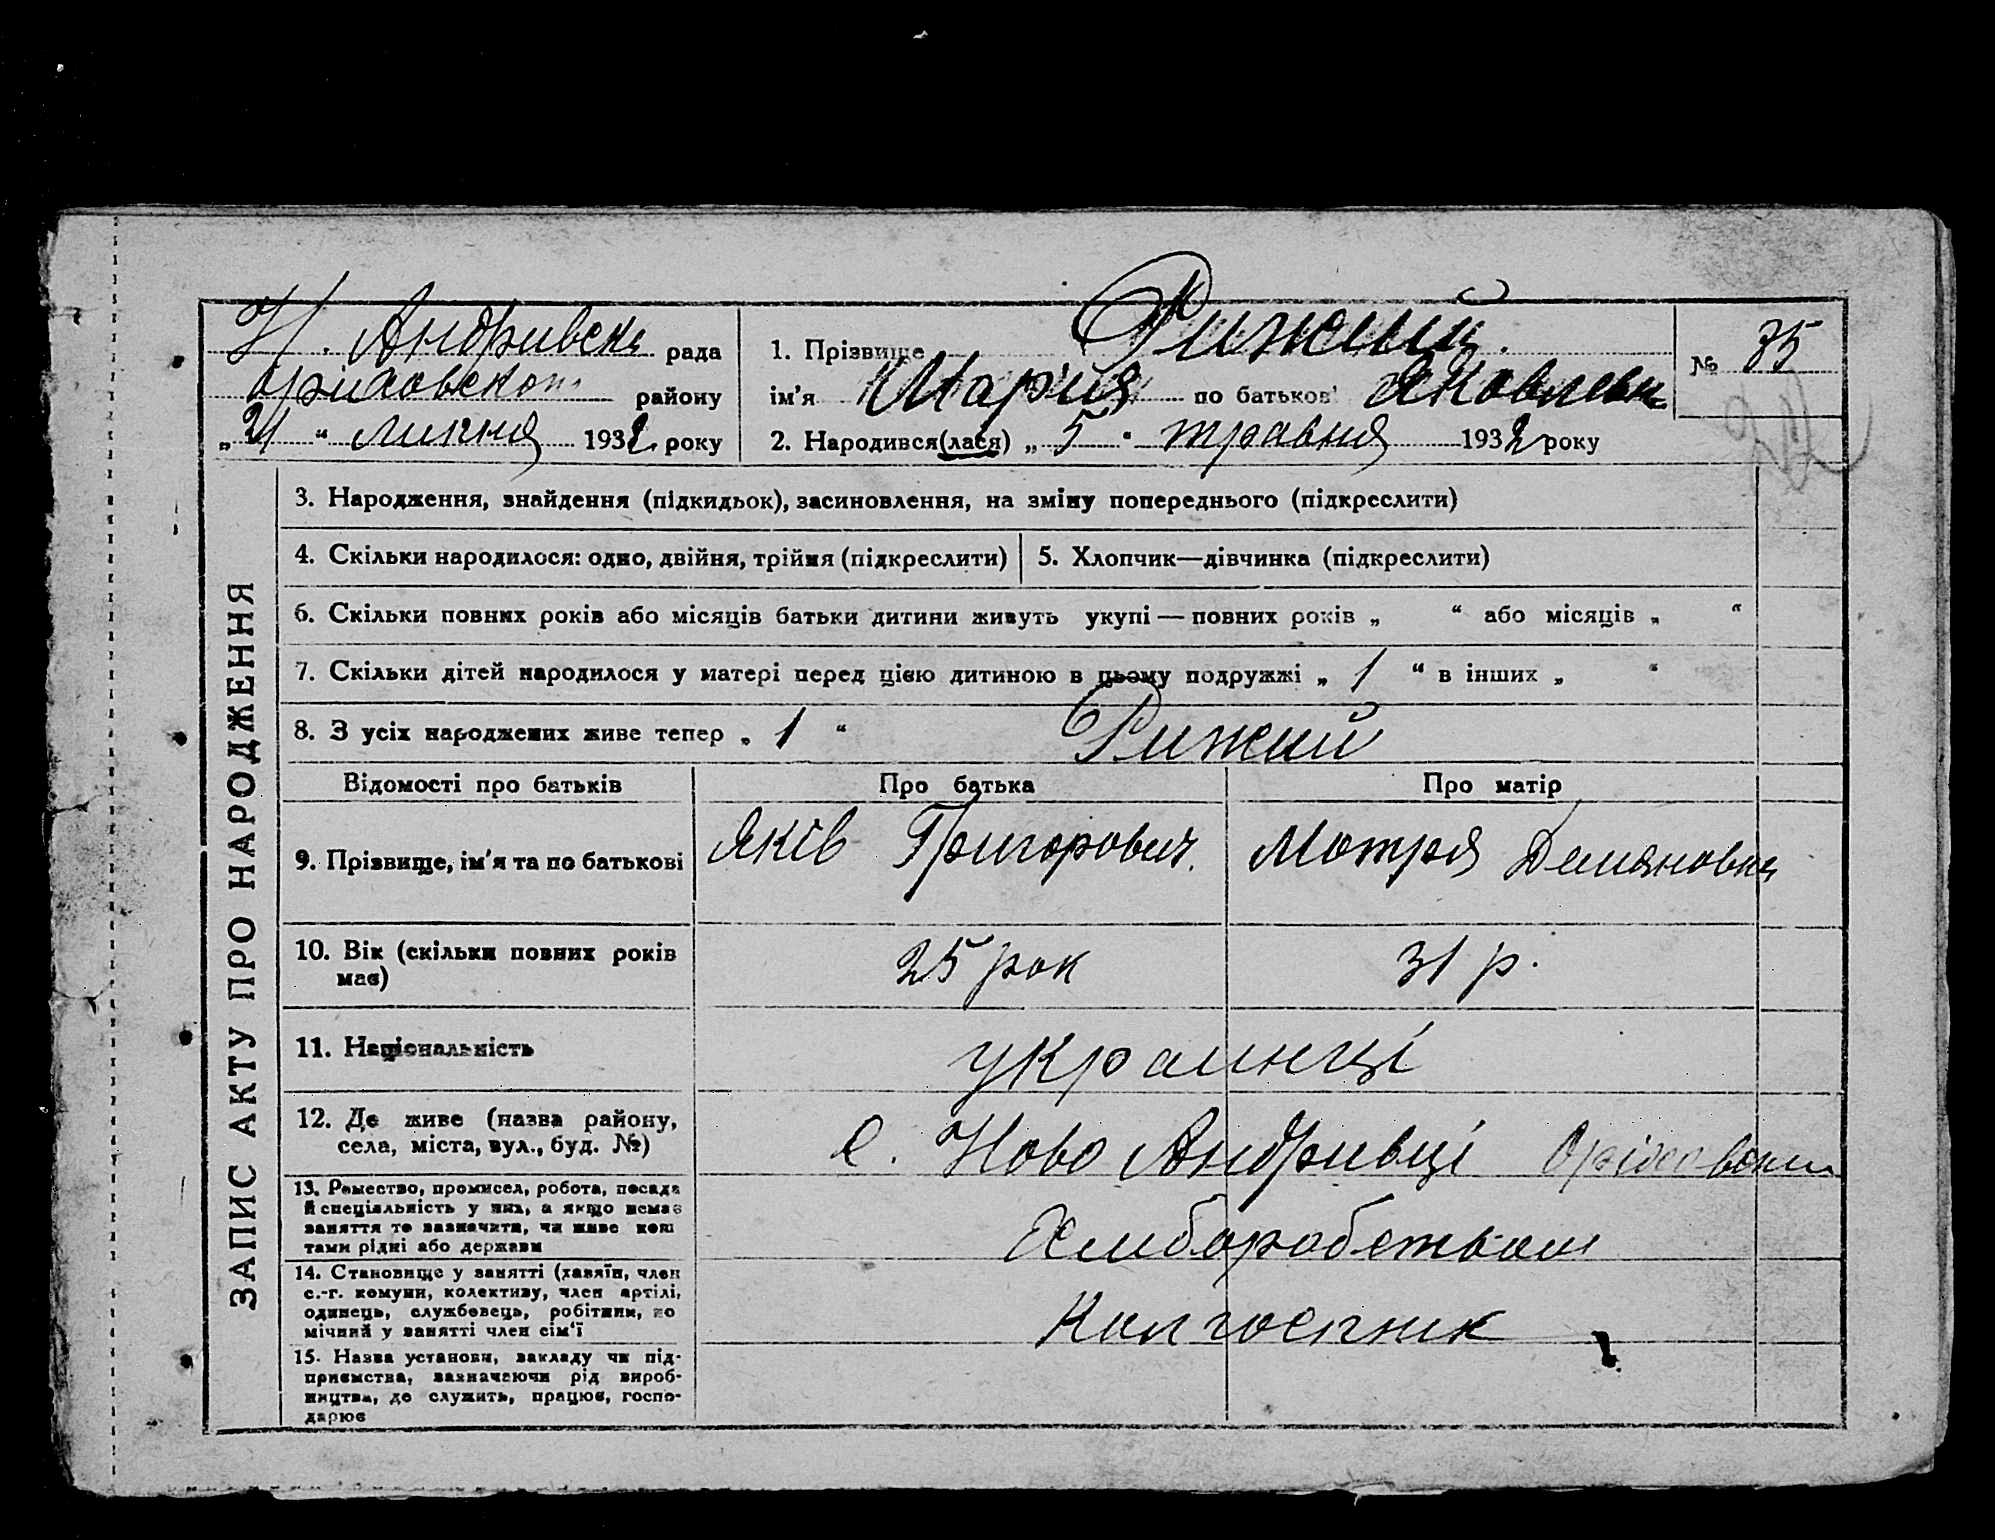 Н. Андривськ рада
Оріховского району
„21“ липня 1932 року
1. Прізвище Рижий.
ім'я Марія по батькові Яковлевн
2. Народився(лася) „5“ травня 1932 року
№ 35
ЗАПИС АКТУ ПРО НАРОДЖЕННЯ
3. Народження, знайдення (підкидьок), засиновлення, на зміну попереднього (підкреслити)
4. Скільки народилося: одно, двійня, трійня (підкреслити)
5. Хлопчик—дівчинка (підкреслити)
6. Скільки повних років або місяців батьки дитини живуть укупі — повних років „ “ або місяців „ “
7. Скільки дітей народилося у матері перед цією дитиною в цьому подружжі „ 1 “ в інших „ “
8. З усіх народжених живе тепер „ 1 “
Рижий
Відомості про батьків
Про батька
Про матір
9. Прізвище, ім'я та по батькові
Яків Григорович.
Мотря Демяновна
10. Вік (скільки повних років
має)
25 рок
31 р.
11. Національність
украинці
12. Де живе (назва району,
села, міста, вул., буд. №)
с. Ново Андривці Оріховськи
13. Ремество, промисел, робота, посада
й спеціяльність у них, а якщо немає
заняття то вазначити, чи живе кош
тами рідні або держави
Хлиборобством
14. Становище у занятті (хазяїн, член
с.-г. комуни, колективу, член артілі,
одинець, службовець, робітник, по
мічний у занятті член сім'ї
Колгоспник
15. Назва установи, закладу чи під-
приємства, вазначаючи рід вироб-
ництва, де служить, працює, госпо-
дарює